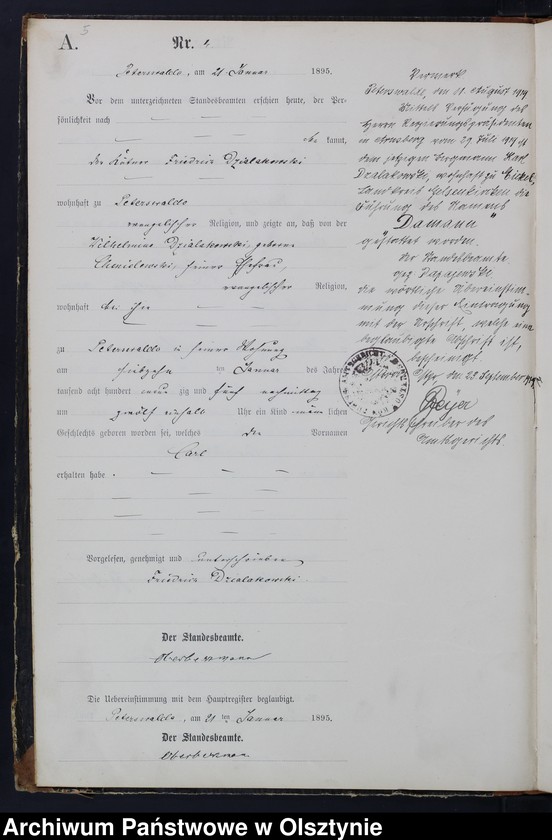 5
A.
Nr. 4
Peterswalde, am 21. Januar 1895.
Vor dem unterzeichneten Standesbeamten erschien heute, der Per-
sönlichkeit nach
kannt,
der Käthner Friedrich Dzialakowski
wohnhaft zu Peterswalde
evangelischer Religion, und zeigte an, daß von der
Wilhelmine Dzialakowski, geborene
seiner Ehefrau,
evangelischer Religion,
wohnhaft bei ihm
zu Peterswalde in seiner Wohnung
am ten Januar des Jahres
tausend acht hundert neun zig und fünf nachmittag
um Uhr ein Kind männlichen
Geschlechts geboren worden sei, welches den Vornamen
Carl
erhalten habe.
Vorgelesen, genehmigt und unterschrieben
Friedrich Dzialakowski
Der Standesbeamte.
Die Uebereinstimmung mit dem Hauptregister beglaubigt.
Peterswalde, am 21 ten Januar 1895.
Der Standesbeamte.
Vermerk
Peterswalde, den August 1919
Mittels Verfügung des
Herrn Regierungspräsidenten
in Arnsberg vom 29. Juli 1919 ist
dem jetzigen Bergmann Karl
Dzialakowski, wohnhaft zu Eickel,
Landkreis Gelsenkirchen die
Führung des Namens
"Damann"
gestattet worden.
Der Standesbeamte
gez.
die wörtliche Übereinstim-
mung dieser Eintragung
mit der Urschrift, welche eine
beglaubigte Abschrift ist,
bescheinigt
den 23. September
Gerichtsschreiber des
Amtsgerichts
Archiwum Państwowe w Olsztynie